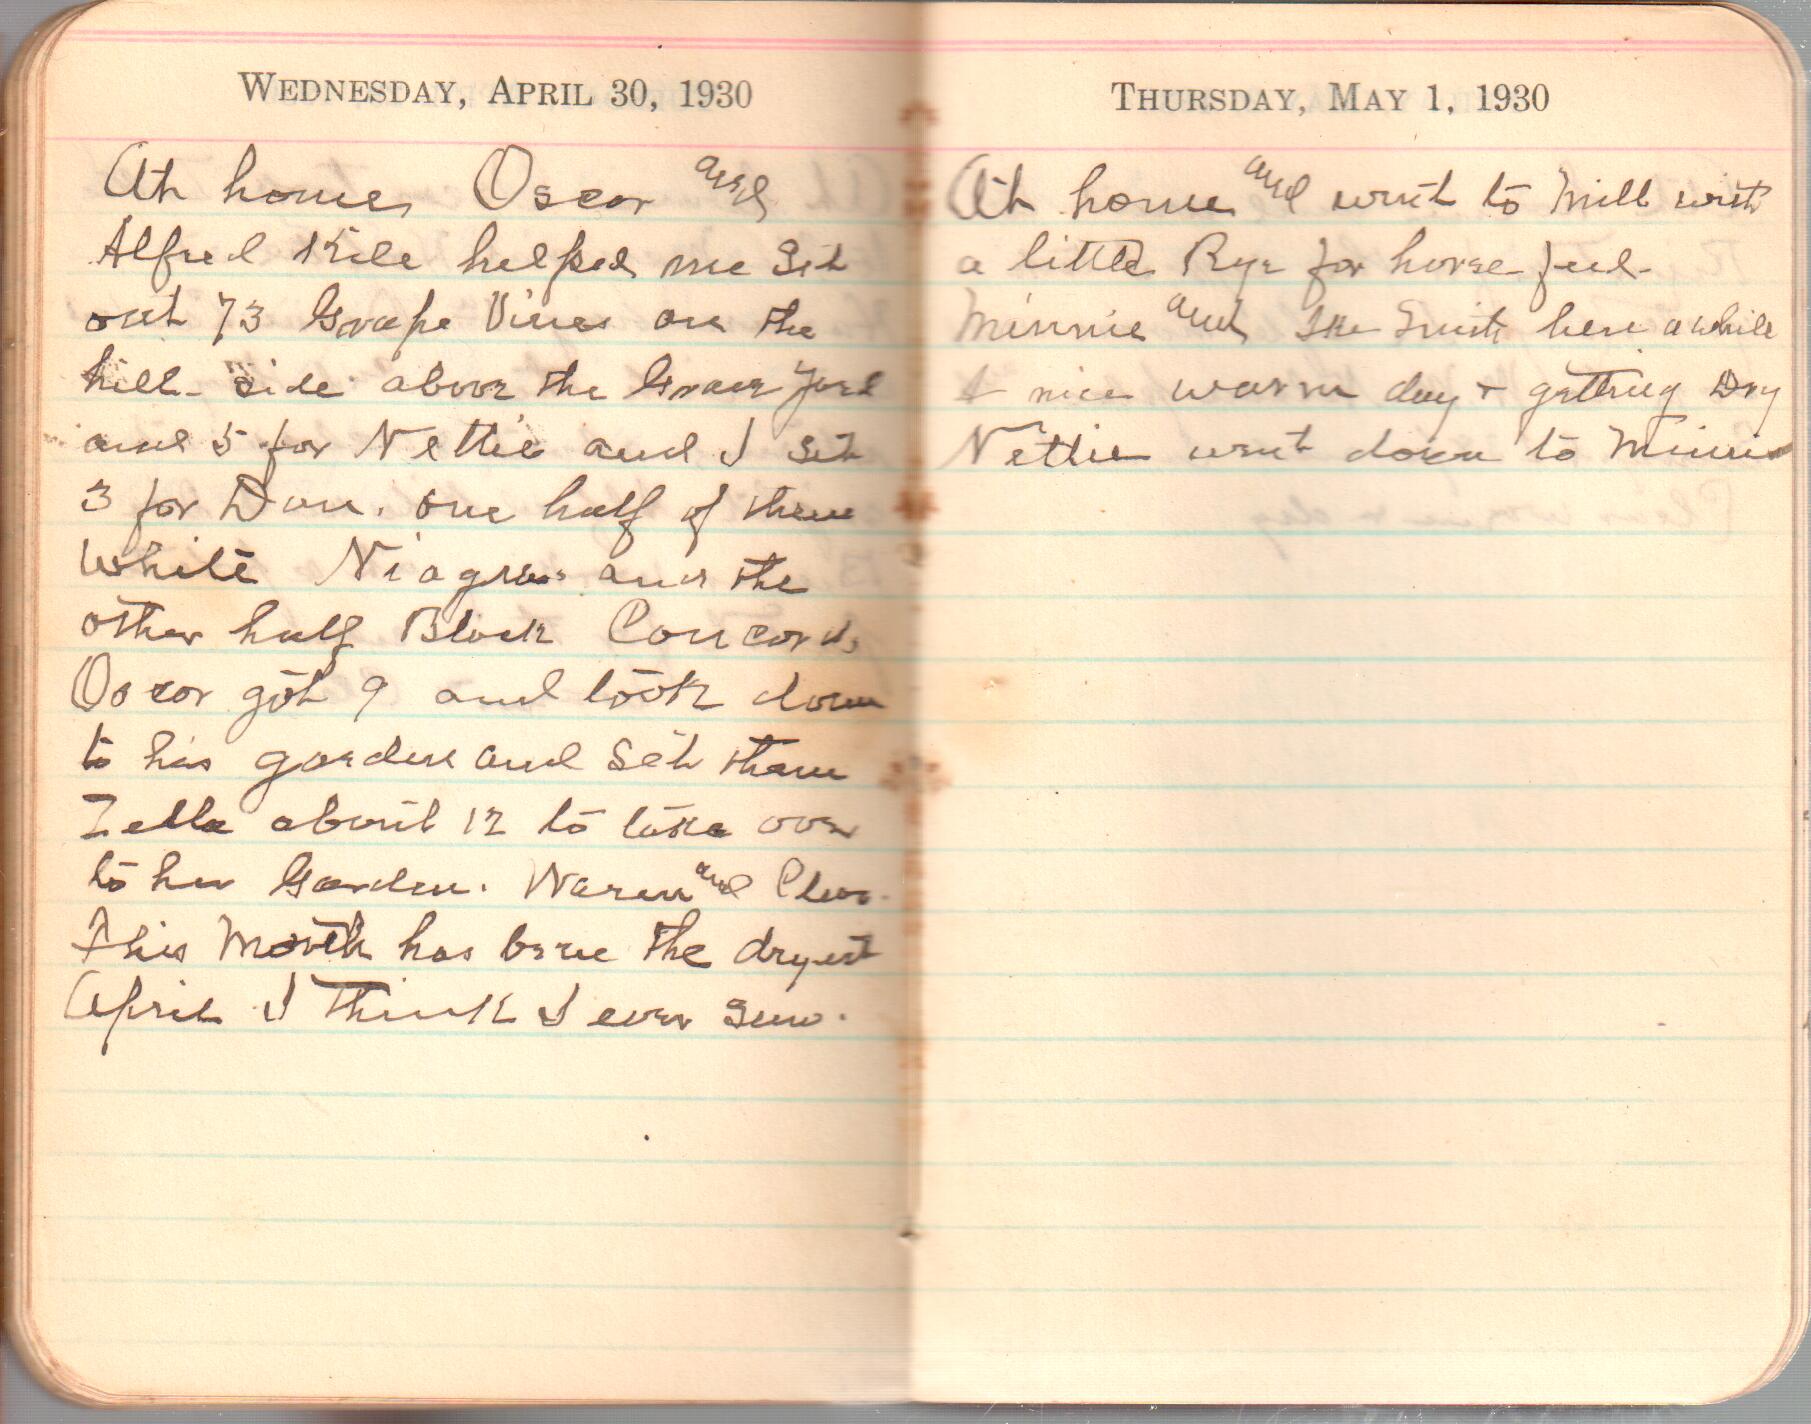 WEDNESDAY, APRIL 30, 1930
At home, Oscar and
Alfred Kile helped me Set
out 73 Grape Vines on the
hill-side above the Grave Yard
and 5 for Nettie and I Set
3 for Dan. one half of them
White Niagras and the
other half Black Concords,
Oscar got 9 and took down
to his garden and Set them
Zella about 12 to take over
to her Garden. Waren and Cleo.
This Month has bene the dryest
April I think I ever Saw.
THURSDAY, MAY 1, 1930
At home and went to Mill with
a little Rye for horse feed.
Minnie and Ike Smith here a while
A nice warm day + getting Dry
Nettie went down to Minnie